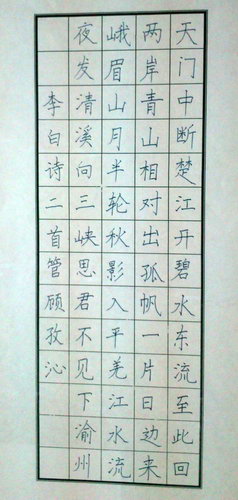 天门中断楚江开碧水东流至此回
两岸青山相对出孤帆一片日边来
峨眉山月半轮秋影入平羌江水流
夜发清溪向三峡思君不见下渝州
李白诗二首管顾孜沁